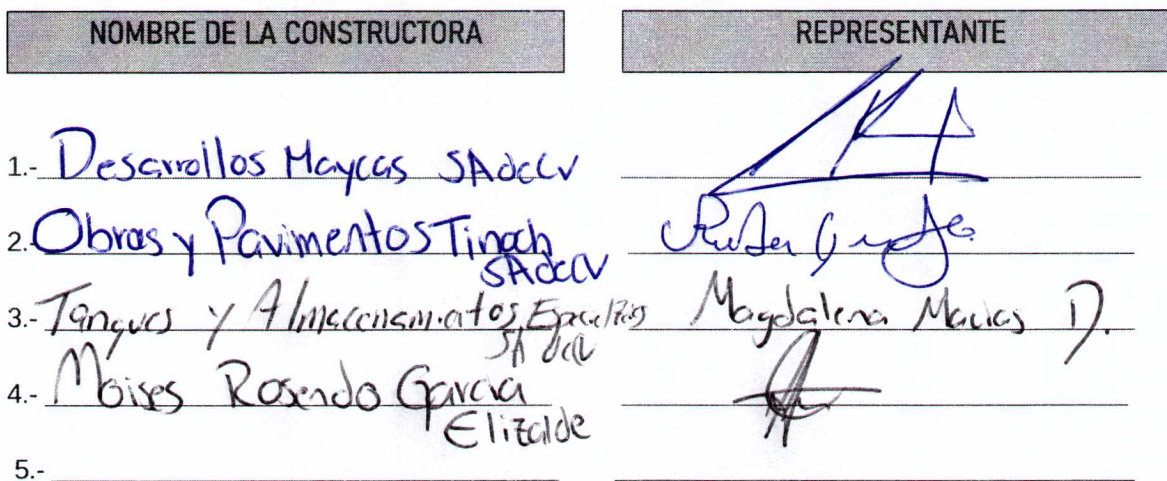 NOMBRE DE LA CONSTRUCTORA REPRESENTANTE
1.- Desarrollos Maycas SAdeCV
2.- Obras y Pavimentos Tinoch
SAdeCV
3.- Tanques y Almacenamientos Magdalena Macias D.
SA deCV
4.- Moises Rosendo Garcia
Elizalde
5.-